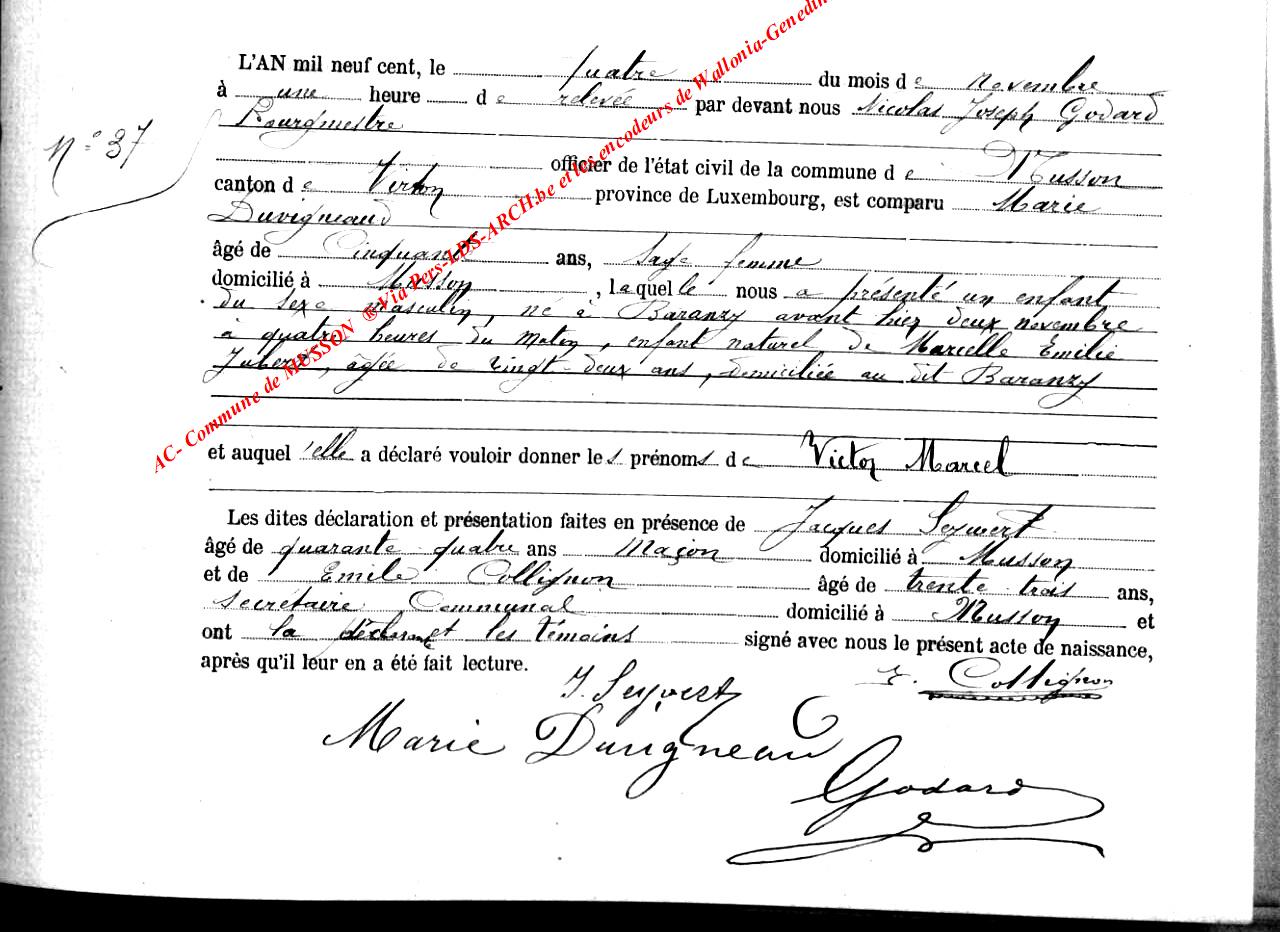 L'AN mil neuf cent, le quatre du mois de novembre
à une heure de relevée par devant nous Nicolas Joseph Godard
Bourgmestre
N° 37
officier de l'état civil de la commune de Musson
canton de Virton province de Luxembourg, est comparu Marie
Duvigneaud
âgé de Cinquante ans, sage femme
domicilié à Musson, laquelle nous a présenté un enfant
du sexe masculin, né à Baranzy avant hier deux novembre
à quatre heures du matin, enfant naturel de Marcelle Emilie
âgée de vingt-deux ans, domiciliée au dit Baranzy
et auquel elle a déclaré vouloir donner les prénoms de Victor Marcel
Les dites déclaration et présentation faites en présence de Jacques Seywert
âgé de quarante quatre ans Maçon domicilié à Musson
et de Emile Collignon âgé de trente trois ans,
secrétaire Communal domicilié à Musson et
ont la déclarante et les témoins signé avec nous le présent acte de naissance,
après qu'il leur en a été fait lecture.
J. Seywert E. Collignon
Marie Duvigneaud
Godard
AC- Commune de MUSSON ® Via Pers-LDS-ARCH.be et les encodeurs de Wallonia-Genedin